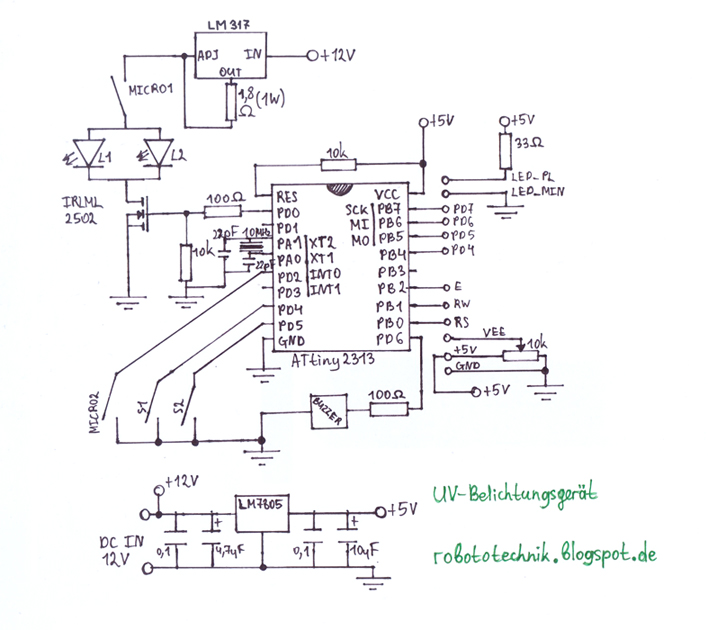 LM317
ADJ IN
OUT
+12V
MICRO1
1,8 (1W)
Ω
L1 L2
+5V
+5V
10k
33Ω
LED_PL
LED_MIN
IRLML
2502
100Ω
10k
22pF 10MHz
22pF
RES
PD0
PD1
PA1 XT2
PA0 XT1
PD2 INT0
PD3 INT1
PD4
PD5
GND
VCC
SCK PB7
MI PB6
MO PB5
PB4
PB3
PB2
PB1
PB0
PD6
PD7
PD6
PD5
PD4
E
RW
RS
VEE
+5V 10k
GND
+5V
ATtiny2313
MICRO2
S1
S2
BUZZER
100Ω
+12V
LM7805
+5V
DC IN
12V
0,1
+
4,7uF
0,1
+
10uF
UV-Belichtungsgerät
robototechnik.blogspot.de